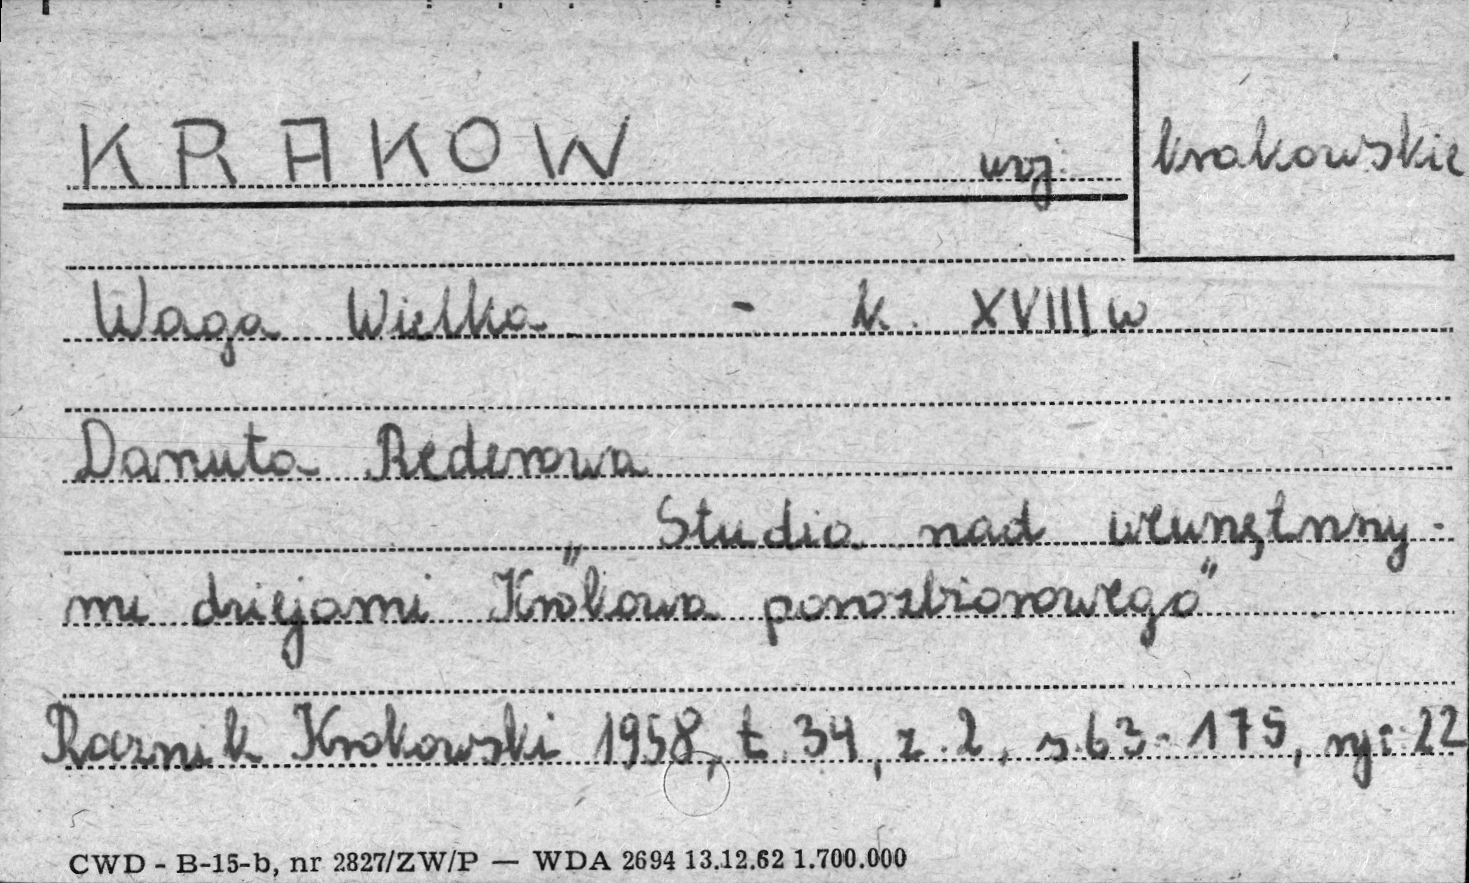 KRAKOW woj. krakowskie
Waga Wielka - k. XVIII w
Danuta Rederowa
„Studia nad wewnętrzny-
mi dziejami Krakowa porozbiorowego"
Rocznik Krakowski 1958, t. 34, z. 2, s. 63-175, ryc. 22
CWD - B-15-b, nr 2827/ZW/P — WDA 2694 13.12.62 1.700.000